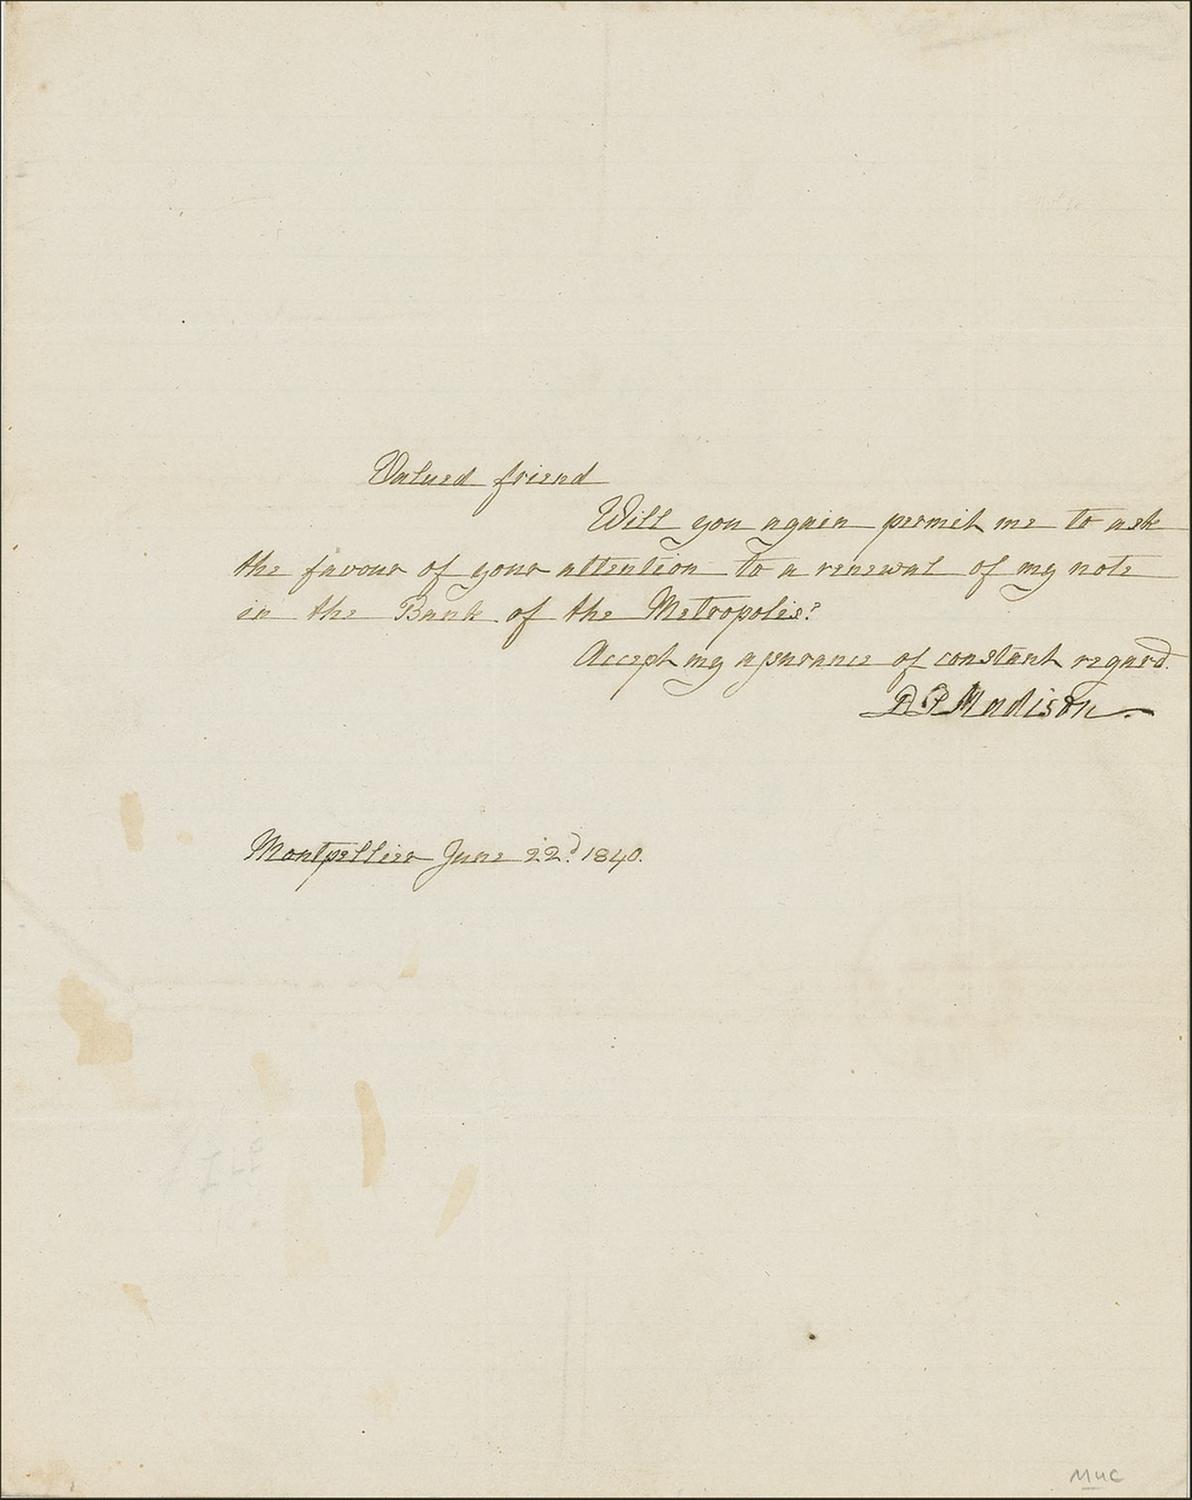 Valued friend
Will you again permit me to ask
the favour of your attention to a renewal of my note
in the Bank of the Metropolis?
Accept my assurance of constant regard.
D P Madison
Montpellier June 22d. 1840.
MUC